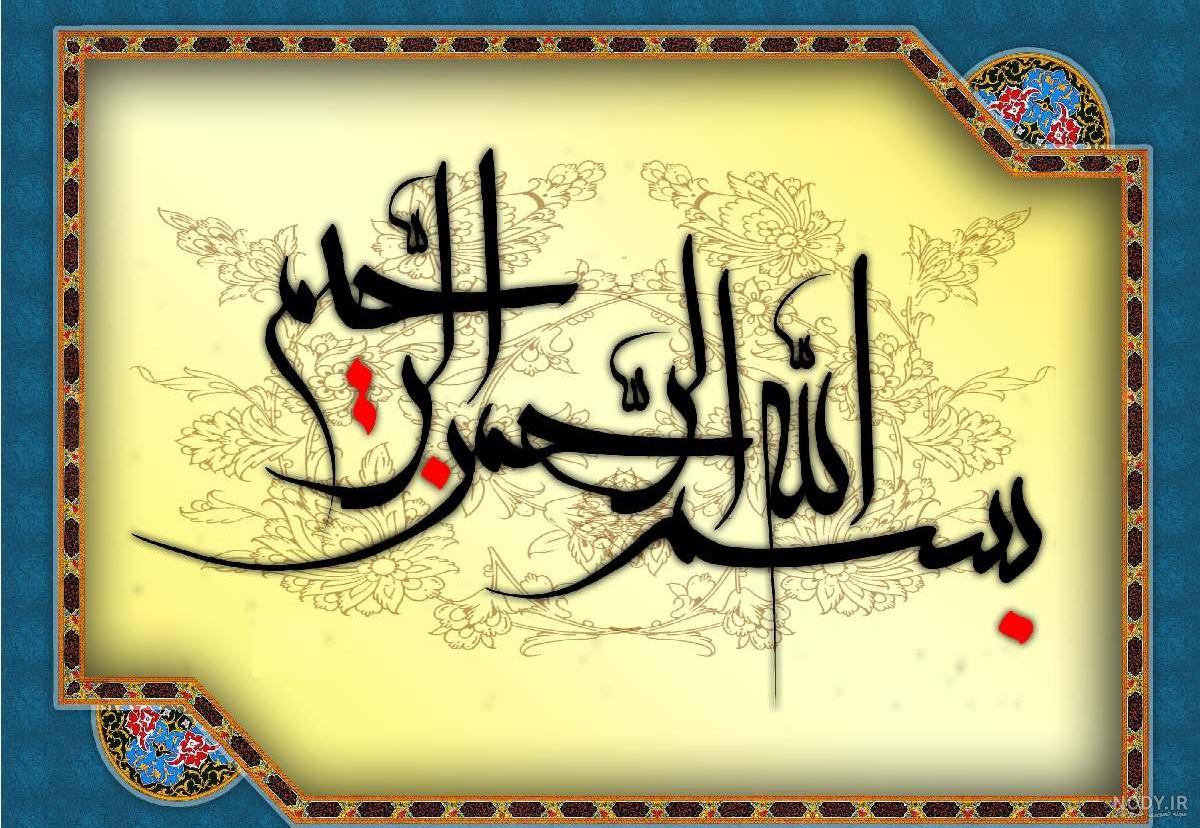 بسم الله الرحمن الرحیم
NODY.IR